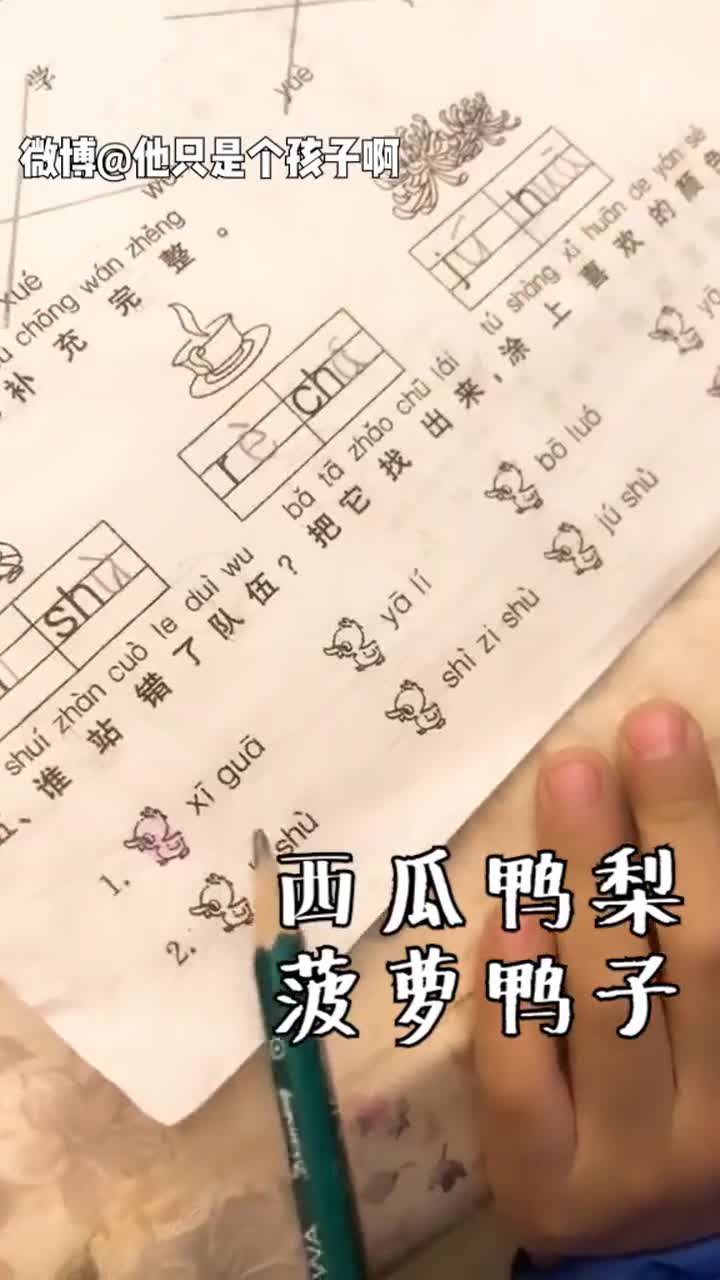 学
yuè
微博@他只是个孩子啊
wú
xué
chōng wán zhěng
补 充 完 整 。
jú huā
rè chá
shù
bǎ tā zhǎo chū lái tú shàng xǐ huān de yán sè
shuí zhàn cuò le duì wu
五、谁 站 错 了 队 伍？把 它 找 出 来，涂 上 喜 欢 的 颜 色
1. xī guā yā lí bō luó yā
2. shù shì zi shù jú shù
西瓜鸭梨
菠萝鸭子